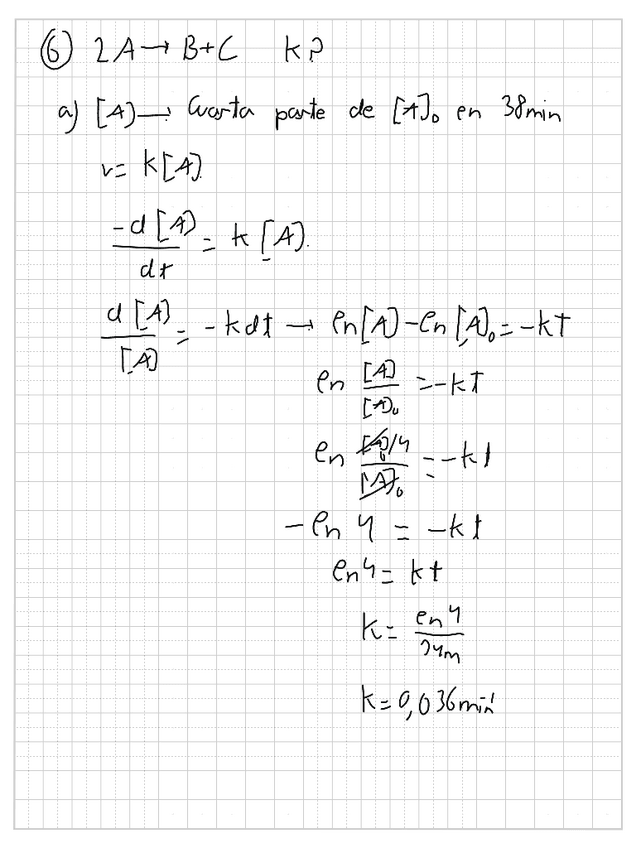 ⑥ 2A → B+C k?
a) [A] → Cuarta parte de [A]₀ en 38min
v= k[A]
-d[A]/dt = k[A].
d[A]/[A] = -kdt → ln[A]-ln[A]₀=-kT
ln [A]/[A]₀ =-kT
ln [A]₀/4/[A]₀ =-kt
-ln 4 = -kt
ln4= kt
k= ln4
k=0,036min⁻¹